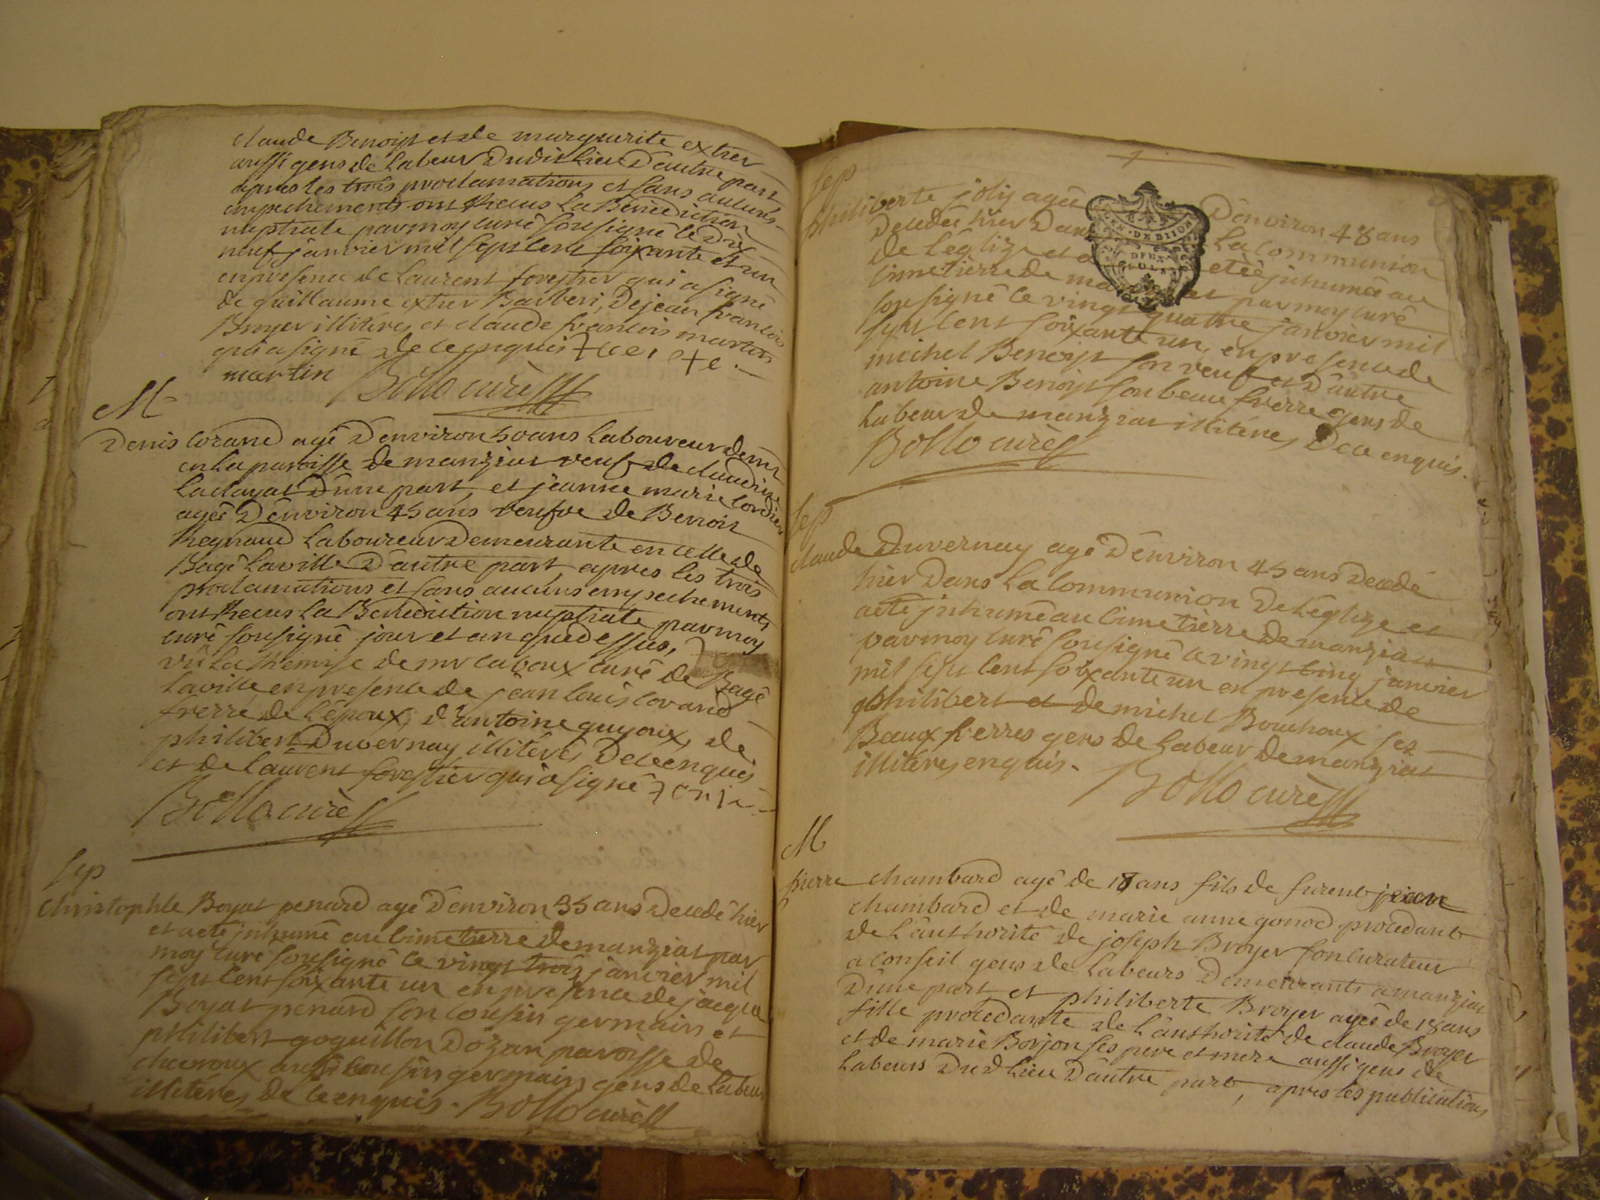 claude Benoist et de marguerite extier
aussi gens de labeur dudit lieu d'autre part
apres les trois proclamations et sans aucuns
empechements ont Recus la Benediction
nuptiale par moy curé soussigné le dix
neuf janvier mil sept cent soixante et un
en presence de laurent forestier qui a signé
de guillaume extier Barberi, de jean francois
Broyer illiteres et claude francois martin
qui a signé de ce enquis
martin Bollo curé
M
Denis Corand agé d'environ 50 ans laboureur demt
en la paroisse de manziat veuf de claudine
d'une part, et jeanne marie Cordier
agée d'environ 45 ans veufve de Benoit
Reynaud laboureur demeurante en celle de
Bagé la ville d'autre part apres les trois
proclamations et sans aucuns empechements
ont Recus la Benediction nuptiale par moy
curé sousigné jour et an que dessus,
vû la Remise de mr curé de Bagé
la ville en presence de jean louis corand
frerre de l'époux, d'antoine guyoux, de
philibert Duvernay illiterés de ce enquis
et de laurent forestier qui a signé
Bollo curé
Sep
Christophle Boyat penard agé d'environ 35 ans decedé hier
et a eté inhumé au cimetierre de manziat par
moy curé sousigné le vingt trois janvier mil
sept cent soixante un en presence de jacque
Boyat penard son cousin germain et
philibert goquillon d'ozan paroisse de
chevroux aussi cousin germain gens de labeur
illiteres de ce enquis. Bollo curé
Sep
philiberte joly agée d'environ 48 ans
decedée hier dans la communion
de l'églize et a etée inhumée au
cimetierre de manziat par moy curé
sousigné le vingt quatre janvier mil
sept cent soixante un, en presence de
michel Benoist son veuf et d'autre
antoine Benoist son beau frerre gens de
labeur de manziat illiteres, de ce enquis.
Bollo curé
Sep
claude Duvernay agé d'environ 45 ans decedé
hier dans la communion de l'églize et
a eté inhumé au cimetierre de manziat
par moy curé sousigné le vingt cinq janvier
mil sept cent soixante un en presence de
philibert et de michel Bouchoux ses
Beaux frerres gens de labeur de manziat
illiteres enquis.
Bollo curé
M
pierre chambard agé de 18 ans fils de furent jean
chambard et de marie anne gonod procedant
de l'authorité de joseph Broyer son curateur
a conseil gens de labeurs demeurants a manziat
d'une part et philiberte Broyer agée de 18 ans
fille procedante de l'authorité de claude Broyer
et de marie Borjon ses pere et mere aussi gens de
labeurs dud lieu d'autre part, apres les publications